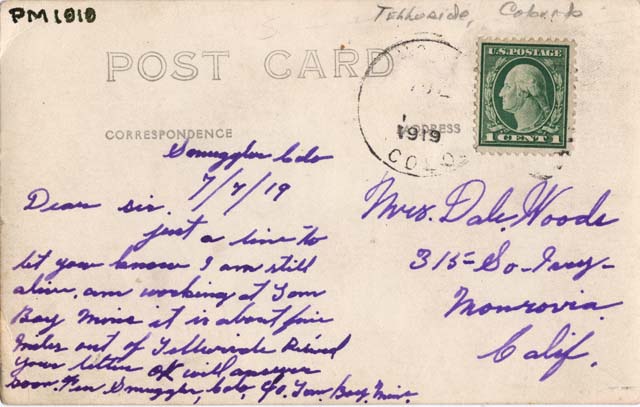 PM 1919
Telluride, Colorado
POST CARD
U.S. POSTAGE
1 CENT 1
1919
COLO
CORRESPONDENCE
ADDRESS
Smuggler Colo
7/7/19
Dear sis.
just a line to
let you know I am still
alive, am working at Tom
Boy Mine it is about five
miles out of Telluride Recived
your letter OK will answer
soon. Smuggler, Colo, c/o. Tom Boy. Mine.
Mrs. Dale, Woods
315- So- Ivy-
Monrovia.
Calif.